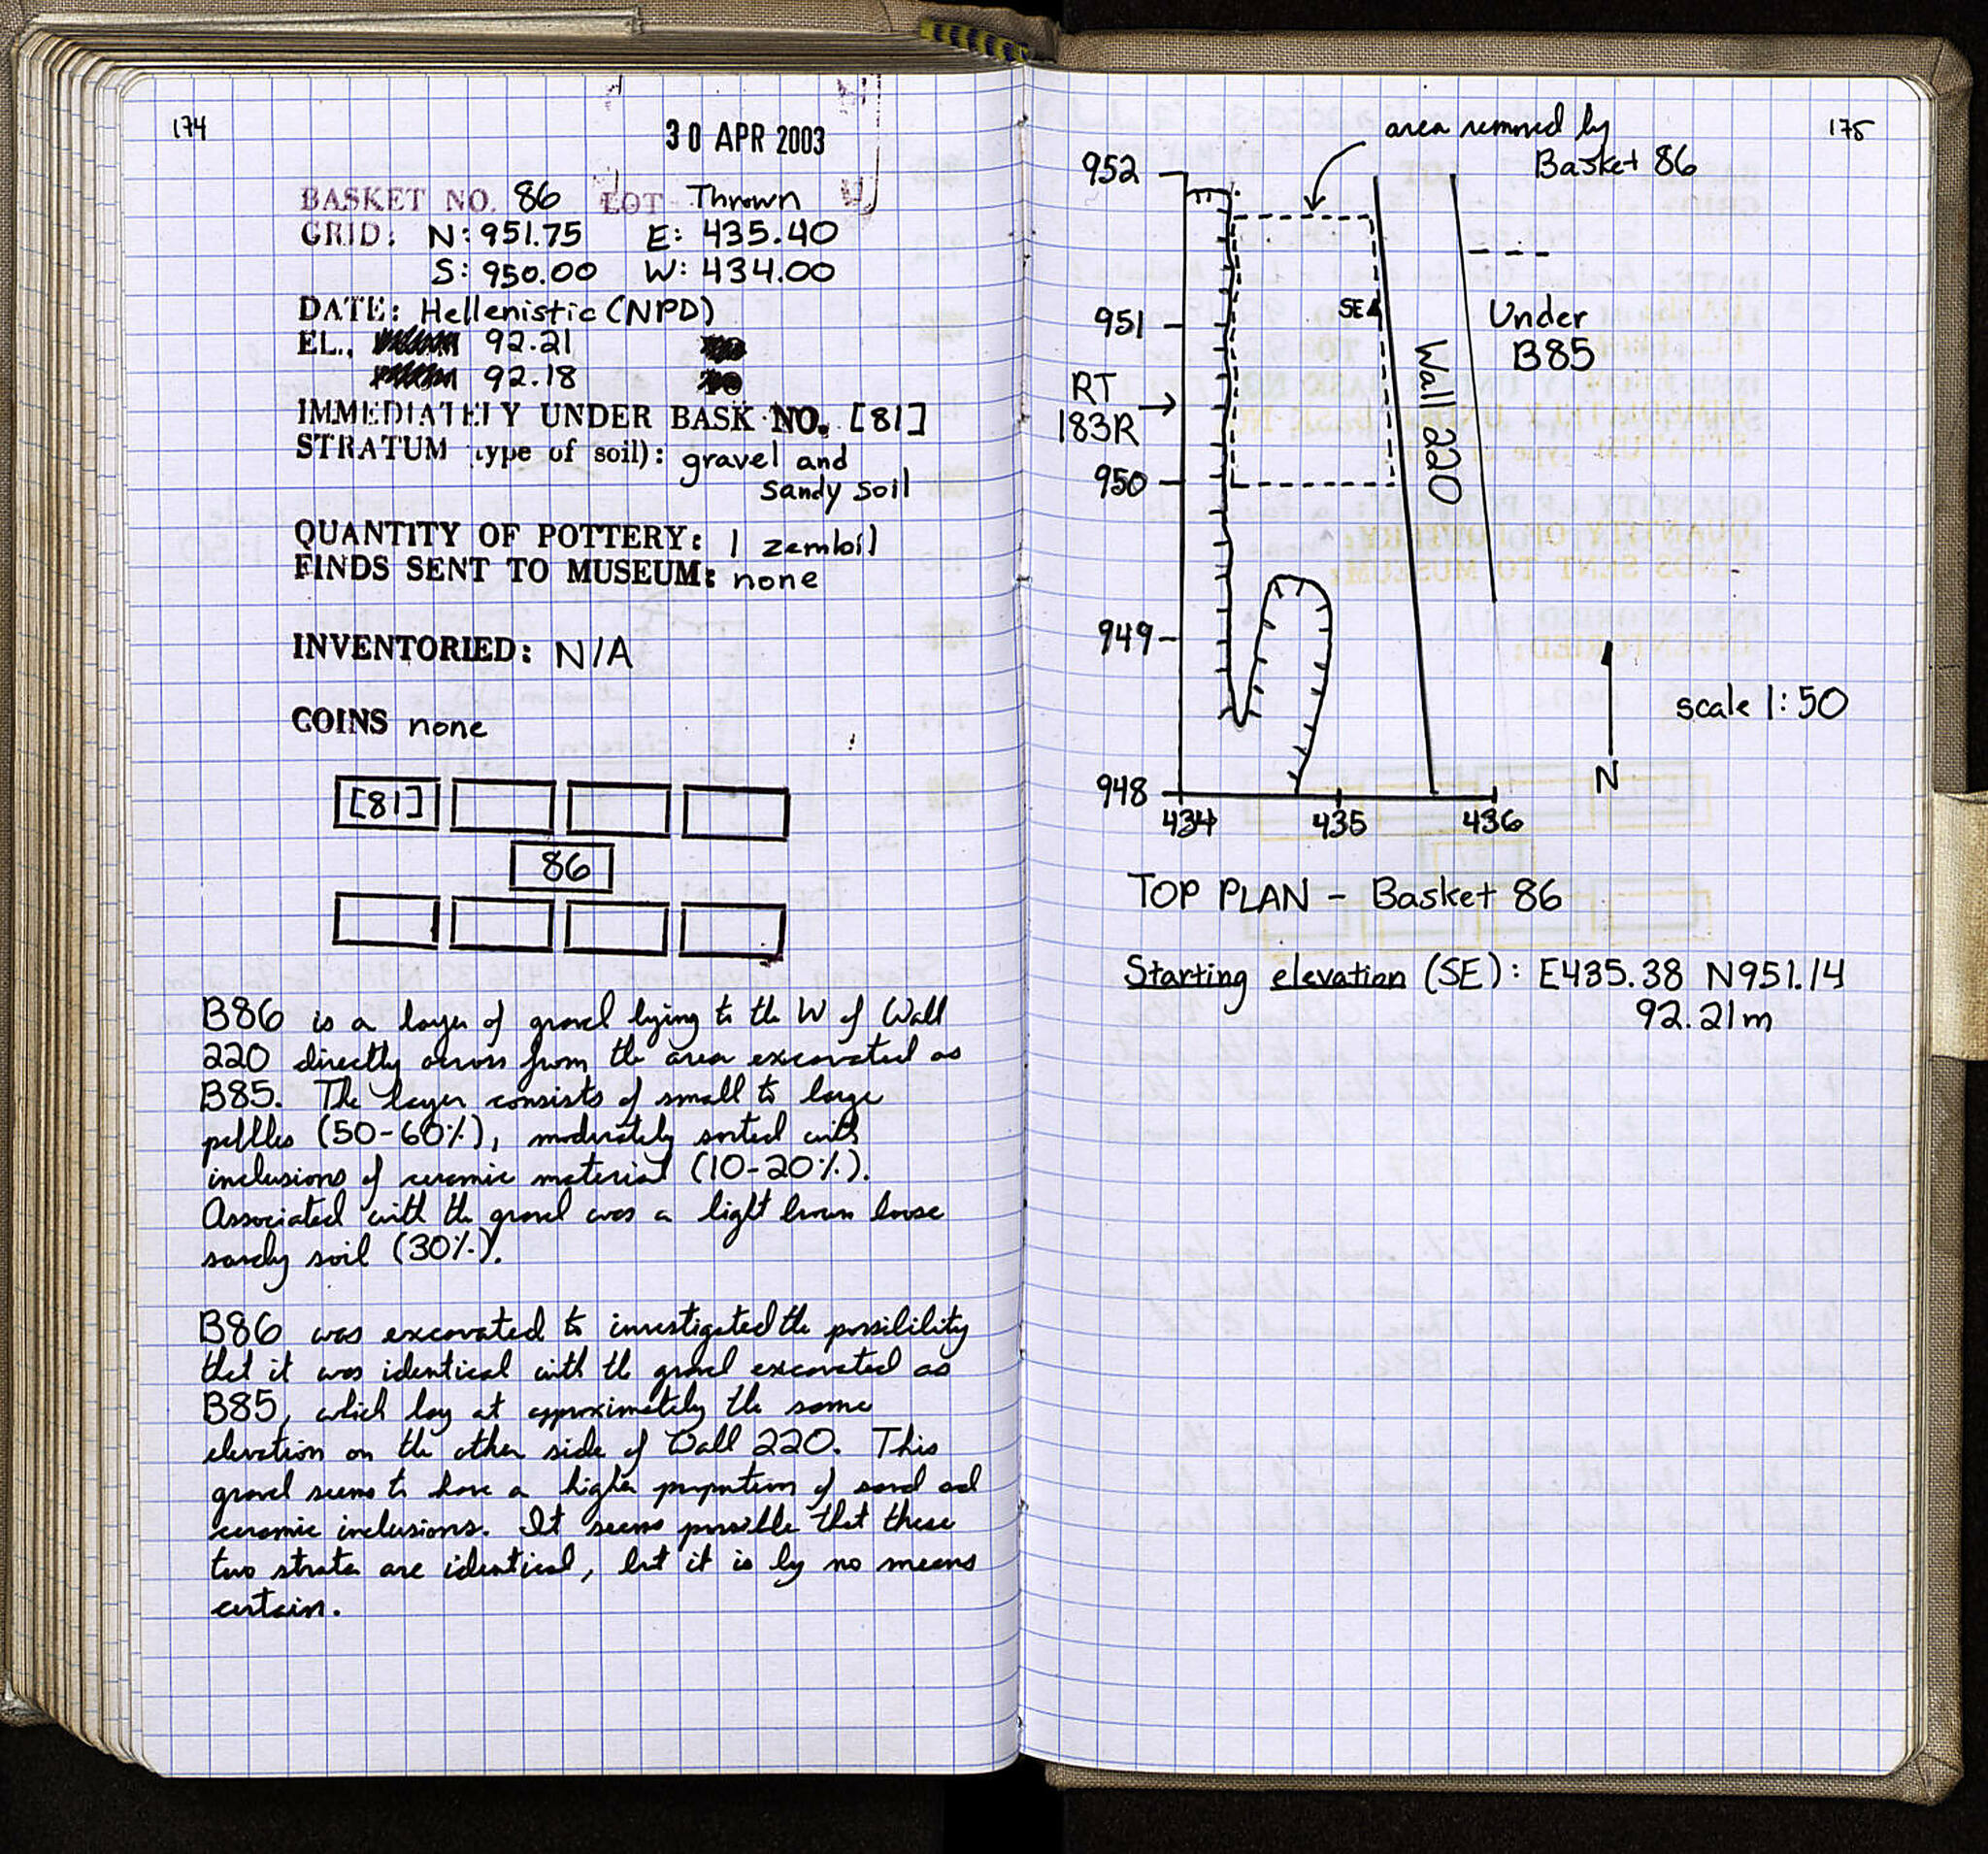 174
30 APR 2003
BASKET NO. 86 LOT Thrown
GRID: N: 951.75 E: 435.40
S: 950.00 W: 434.00
DATE: Hellenistic (NPD)
EL., 92.21
92.18
IMMEDIATELY UNDER BASK NO. [81]
STRATUM type of soil): gravel and
sandy soil
QUANTITY OF POTTERY: 1 zembil
FINDS SENT TO MUSEUM: none
INVENTORIED: N/A
COINS none
[81]
86
B86 is a layer of gravel lying to the W of Wall
220 directly across from the area excavated as
B85. The layer consists of small to large
pebbles (50-60%), moderately sorted with
inclusions of ceramic material (10-20%).
Associated with the gravel was a light brown loose
sandy soil (30%).
B86 was excavated to investigated the possibility
that it was identical with the gravel excavated as
B85, which lay at approximately the same
elevation on the other side of Wall 220. This
gravel seems to have a higher proportion of sand and
ceramic inclusions. It seems possible that these
two strata are identical, but it is by no means
certain.
175
area removed by
Basket 86
952
951
RT
183R
950
949
948
434 435 436
SE
Wall 220
Under
B85
N
scale 1:50
TOP PLAN - Basket 86
Starting elevation (SE): E435.38 N951.14
92.21m